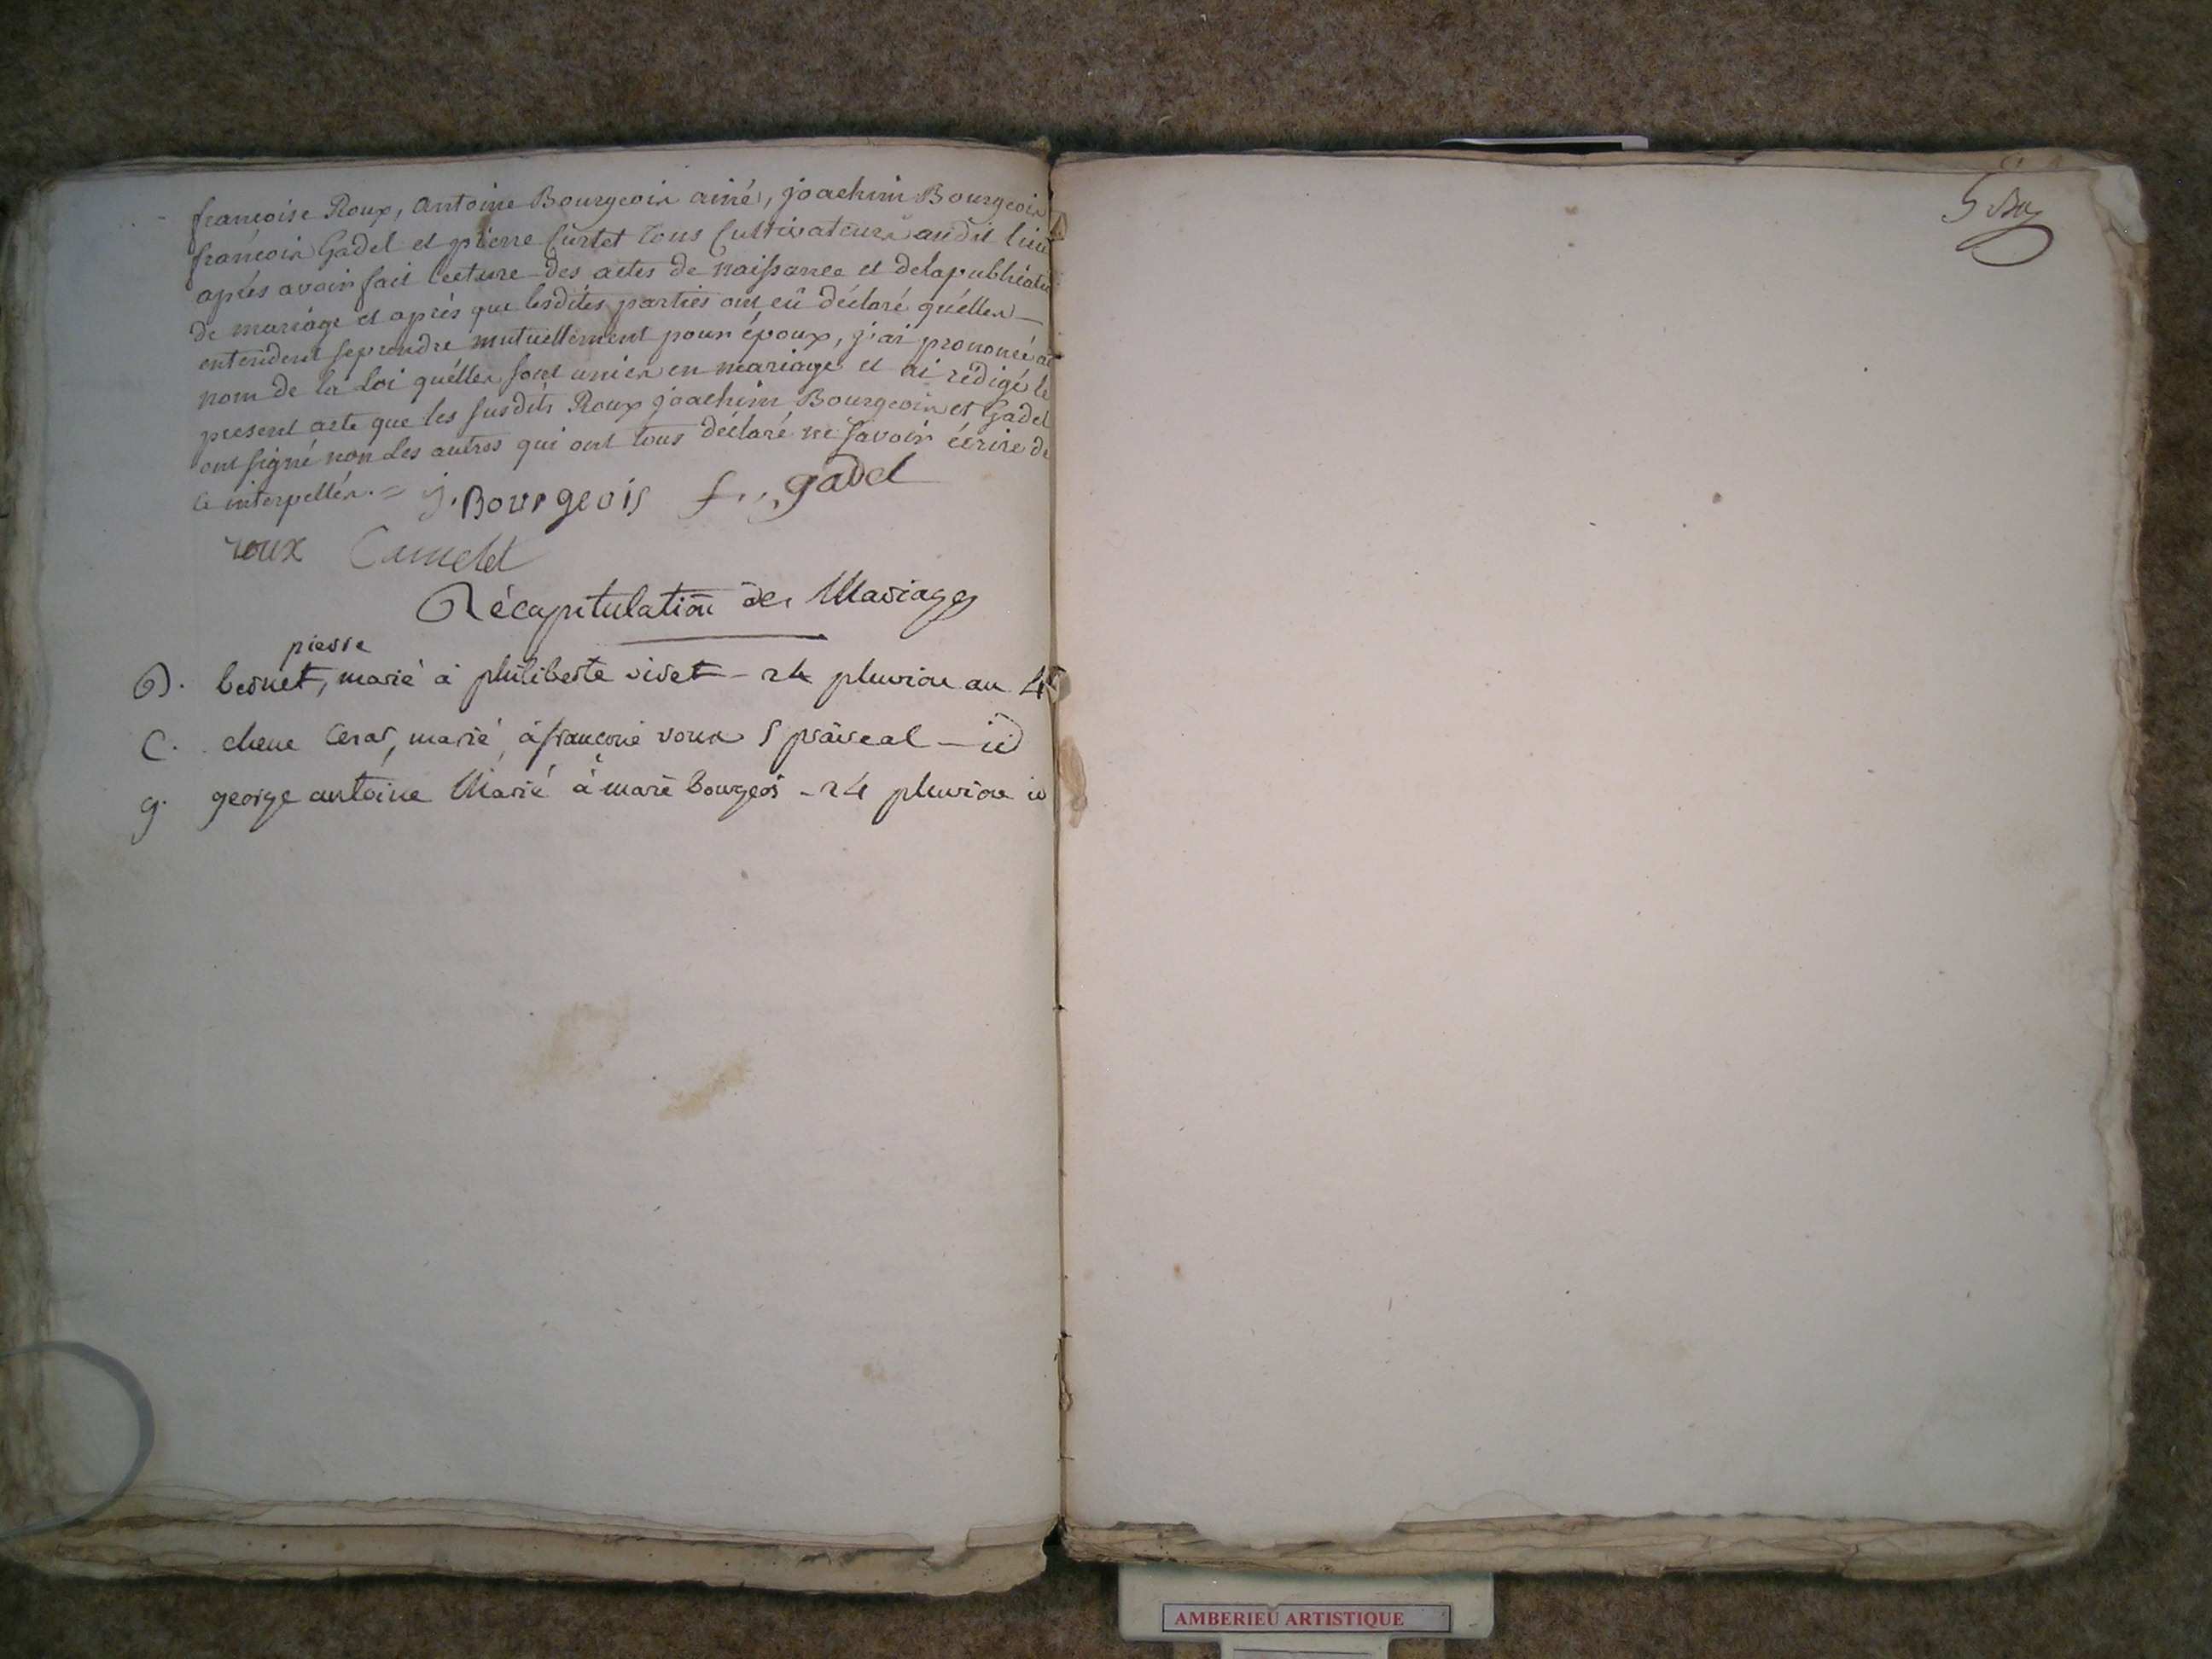 françoise Roux, antoine Bourgeois ainé, joachim Bourgeois
françois Gadel et pierre Curtet tous Cultivateurs audit lieu
aprés avoir fait lecture des actes de naissance et de la publication
de mariage et aprés que lesdites parties ont eû déclaré qu'elles
entendent se prendre mutuellement pour époux, j'ai prononcé au
nom de la Loi quélles sont unies en mariage et ai rédigé le
present acte que les susdits Roux joachim Bourgeois et Gadel
ont signé non les autres qui ont tous déclaré ne savoir écrire de
ce interpellés. =
j. Bourgeois f. gadel
roux
Récapitulation des Mariages
pierre
B. bernet, marié à philiberte vivet - 24 pluviose an 4
C. chene cesar, marié à françoise roux 5 prairéal - id
g. george antoine Marié à marie bourgeois - 24 pluviose id
5
AMBERIEU ARTISTIQUE